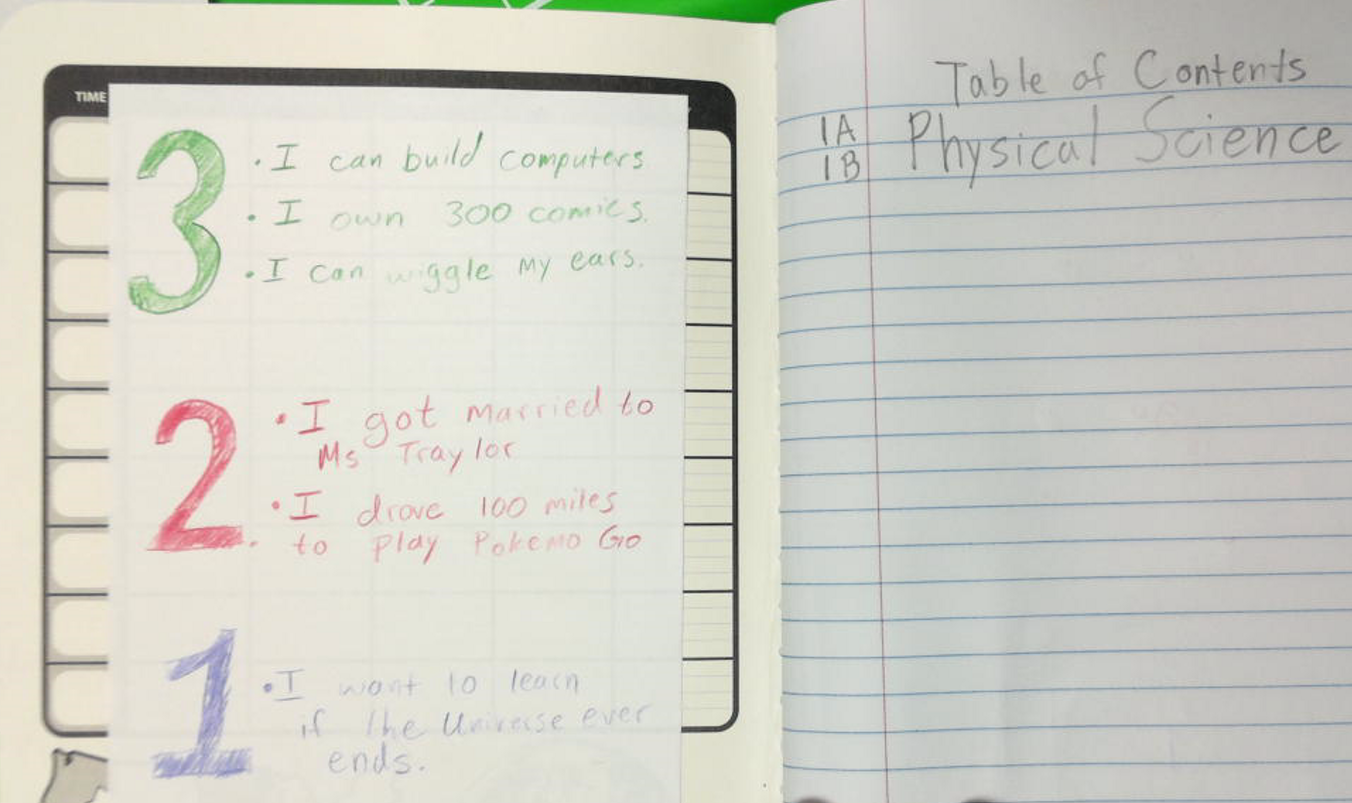 TIME
3
• I can build computers
• I own 300 comics.
• I can wiggle my ears.
2
• I got married to
Ms Traylor
• I drove 100 miles
to play Pokemo Go
1
• I want to learn
if the Universe ever
ends.
Table of Contents
1A
1B
Physical Science